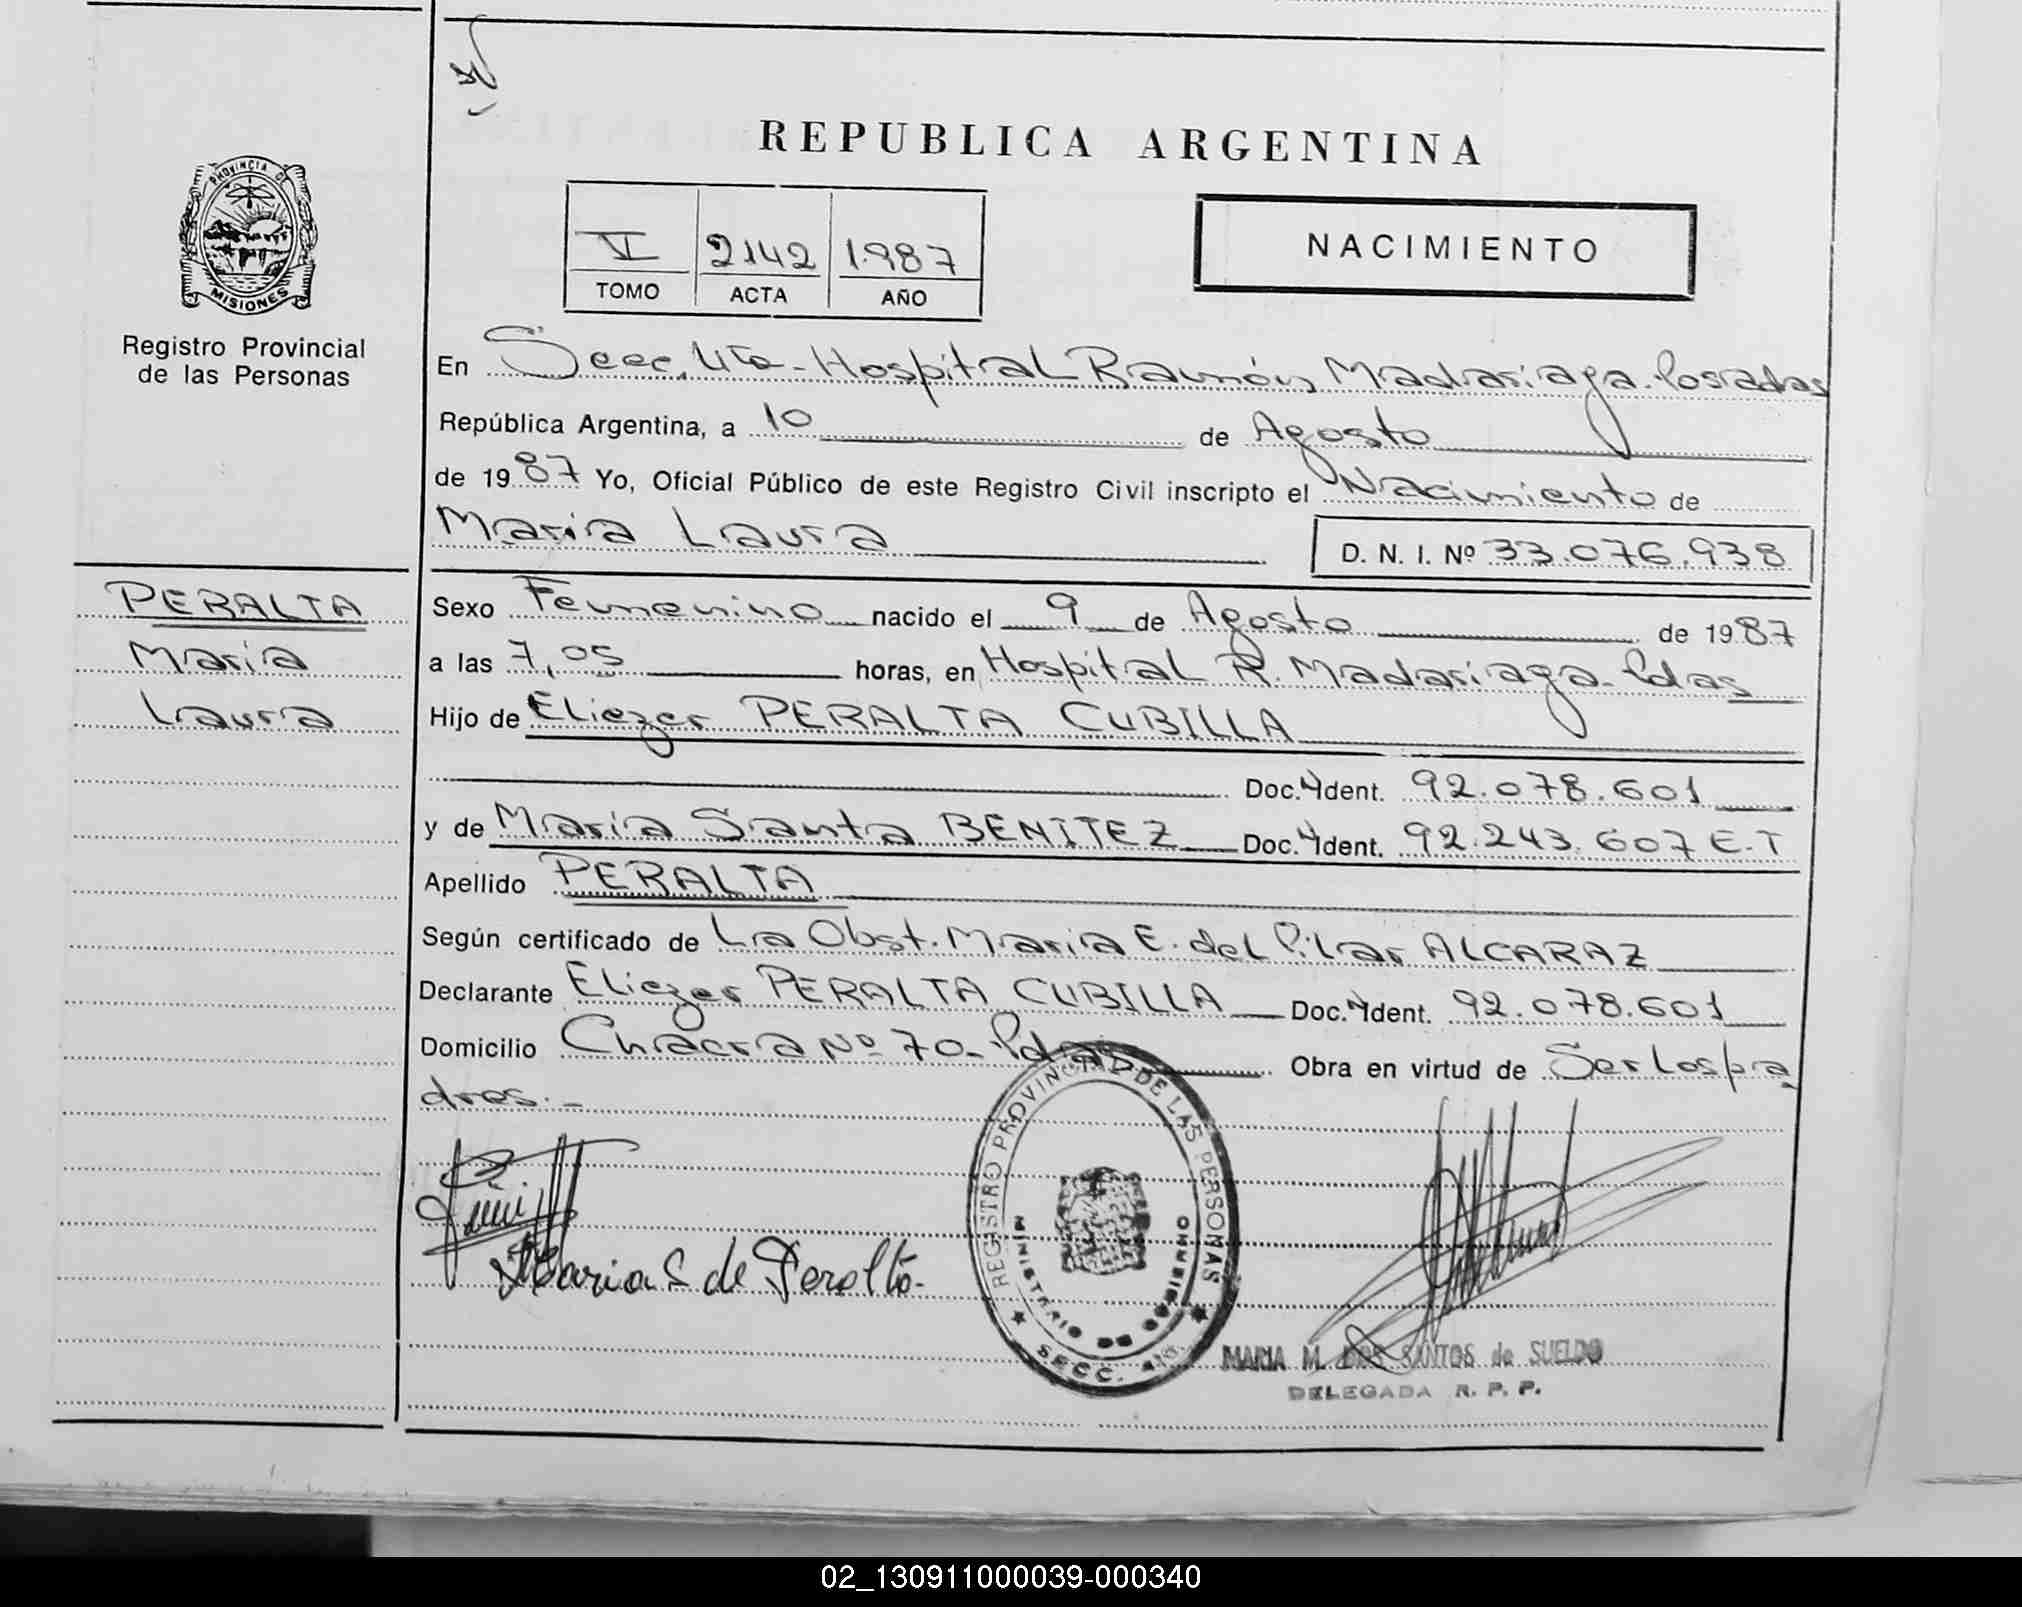 REPUBLICA ARGENTINA
PROVINCIA DE
MISIONES
Registro Provincial
de las Personas
V 2142 1.987
TOMO ACTA AÑO
NACIMIENTO
En Secc. 4ta - Hospital Ramón Madariaga - Posadas
República Argentina, a 10 de Agosto
de 1987 Yo, Oficial Público de este Registro Civil inscripto el Nacimiento de
María Laura
D. N. I. Nº 33.076.938
PERALTA
María
Laura
Sexo Femenino nacido el 9 de Agosto de 1987
a las 7,05 horas, en Hospital R. Madariaga - Pdas
Hijo de Eliezer PERALTA CUBILLA
Doc. Ident. 92.078.601
y de María Santa BENITEZ Doc. Ident. 92.243.607 E.T
Apellido PERALTA
Según certificado de La Obst. María E. del Pilar ALCARAZ
Declarante Eliezer PERALTA CUBILLA Doc. Ident. 92.078.601
Domicilio Chacra Nº 70 - Pdas Obra en virtud de Ser los pa
dres.-
Maria S de Peralta.
REGISTRO PROVINCIAL DE LAS PERSONAS
MINISTERIO DE GOBIERNO
SECC. 4ta
MARIA M. DOS SANTOS de SUELDO
DELEGADA R. P. P.
02_130911000039-000340